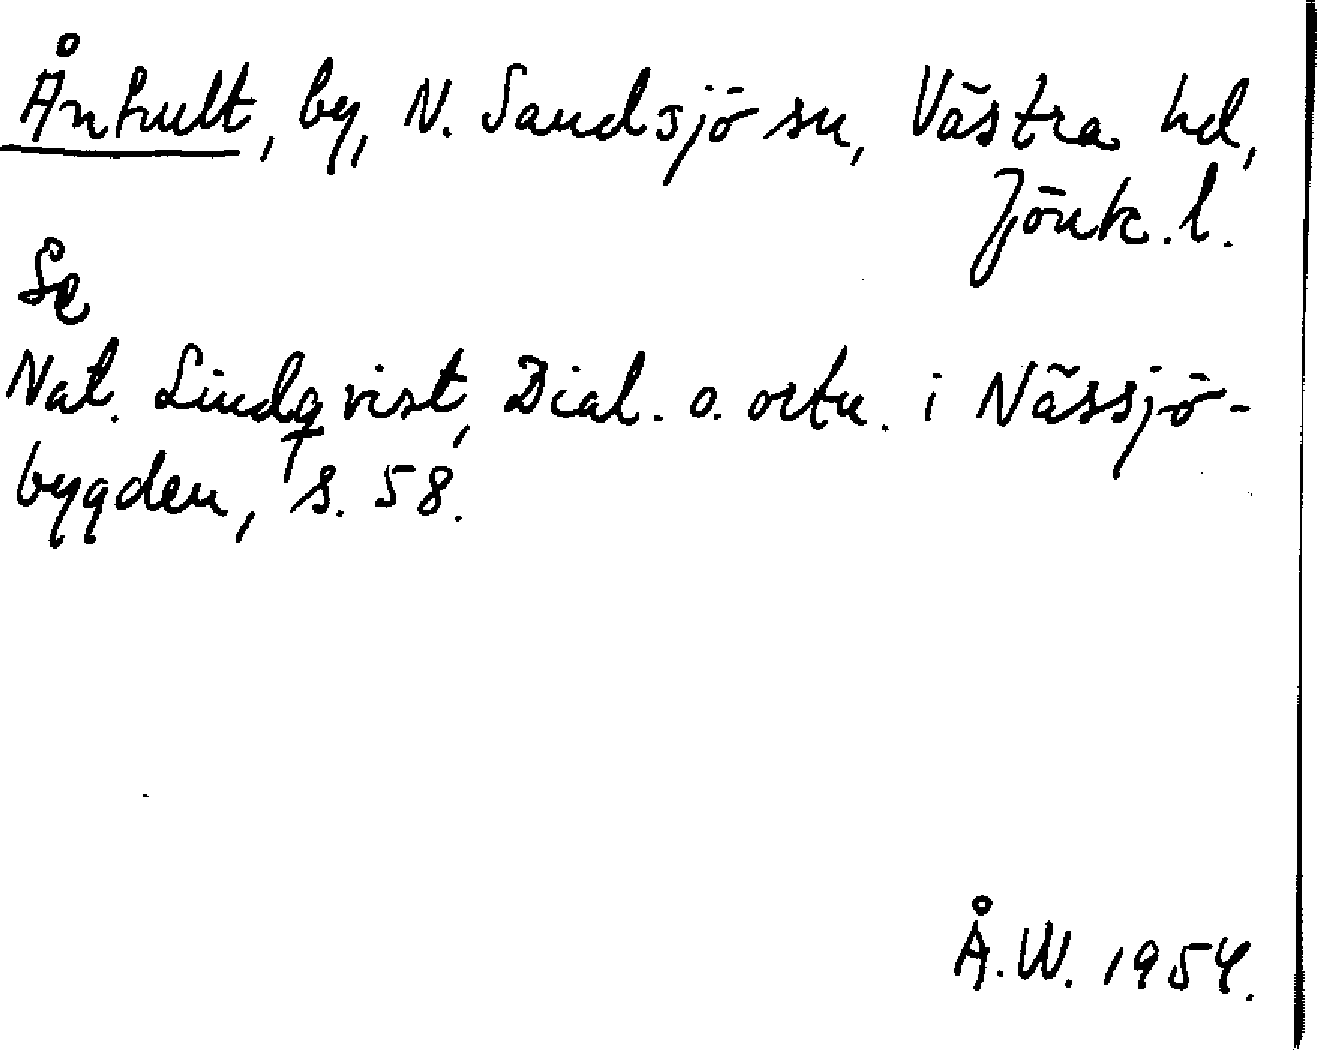 Ånhult, by, N. Sandsjö sn, Västra hd,
Jönk. l.
Se
Nat. Lindqvist, Dial. o. ortn. i Nässjö-
bygden, s. 58.
Å.W. 1954.